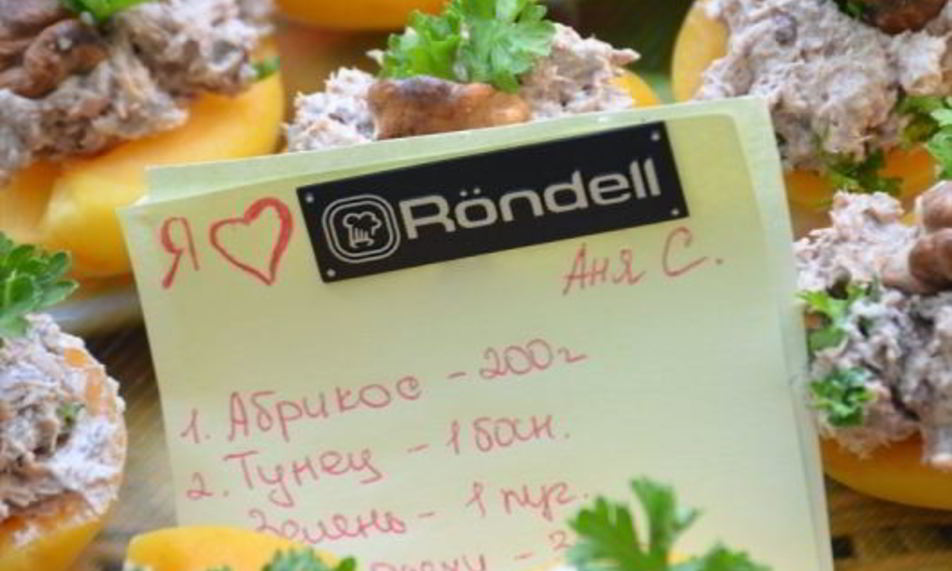 Я ♡ Röndell
Аня С.
1. Абрикос - 200г
2. Тунец - 1 бан.
Зелень - 1 пуч.